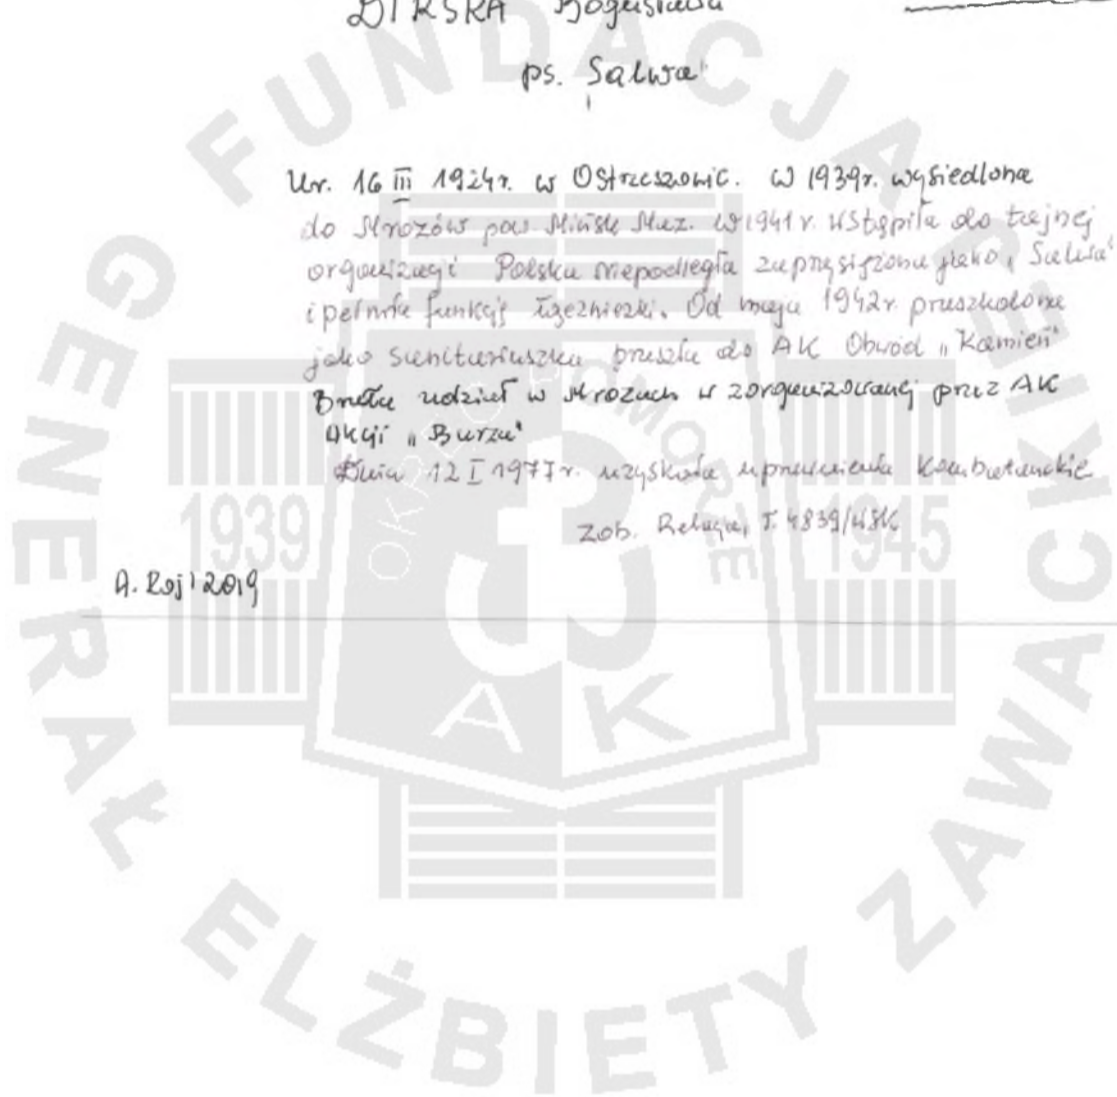 DIRSKA Bogusława
ps. Salwa"
Ur. 16 III 1924r. w Ostrzeszowie. W 1939r. wysiedlona
do Mrozów pow. Mińsk Maz. W 1941 r. wstąpiła do tajnej
organizacji Polska niepodległa zaprzysiężona jako „Salwa"
i pełniła funkcję łączniczki. Od maja 1942r. przeszkolona
jako sanitariuszka przeszła do AK Obwód „Kamień"
Brała udział w Mrozach w zorganizowanej przez AK
Akcji „Burza"
Dnia 12 I 1977r. uzyskała uprawnienia Kombatanckie
zob. Relacja, T. 4839/WSK
A. Roj 2019
FUNDACJA
GENERAŁ ELŻBIETY ZAWACKIEJ
OKRĘG POMORZE
1939
1945
AK